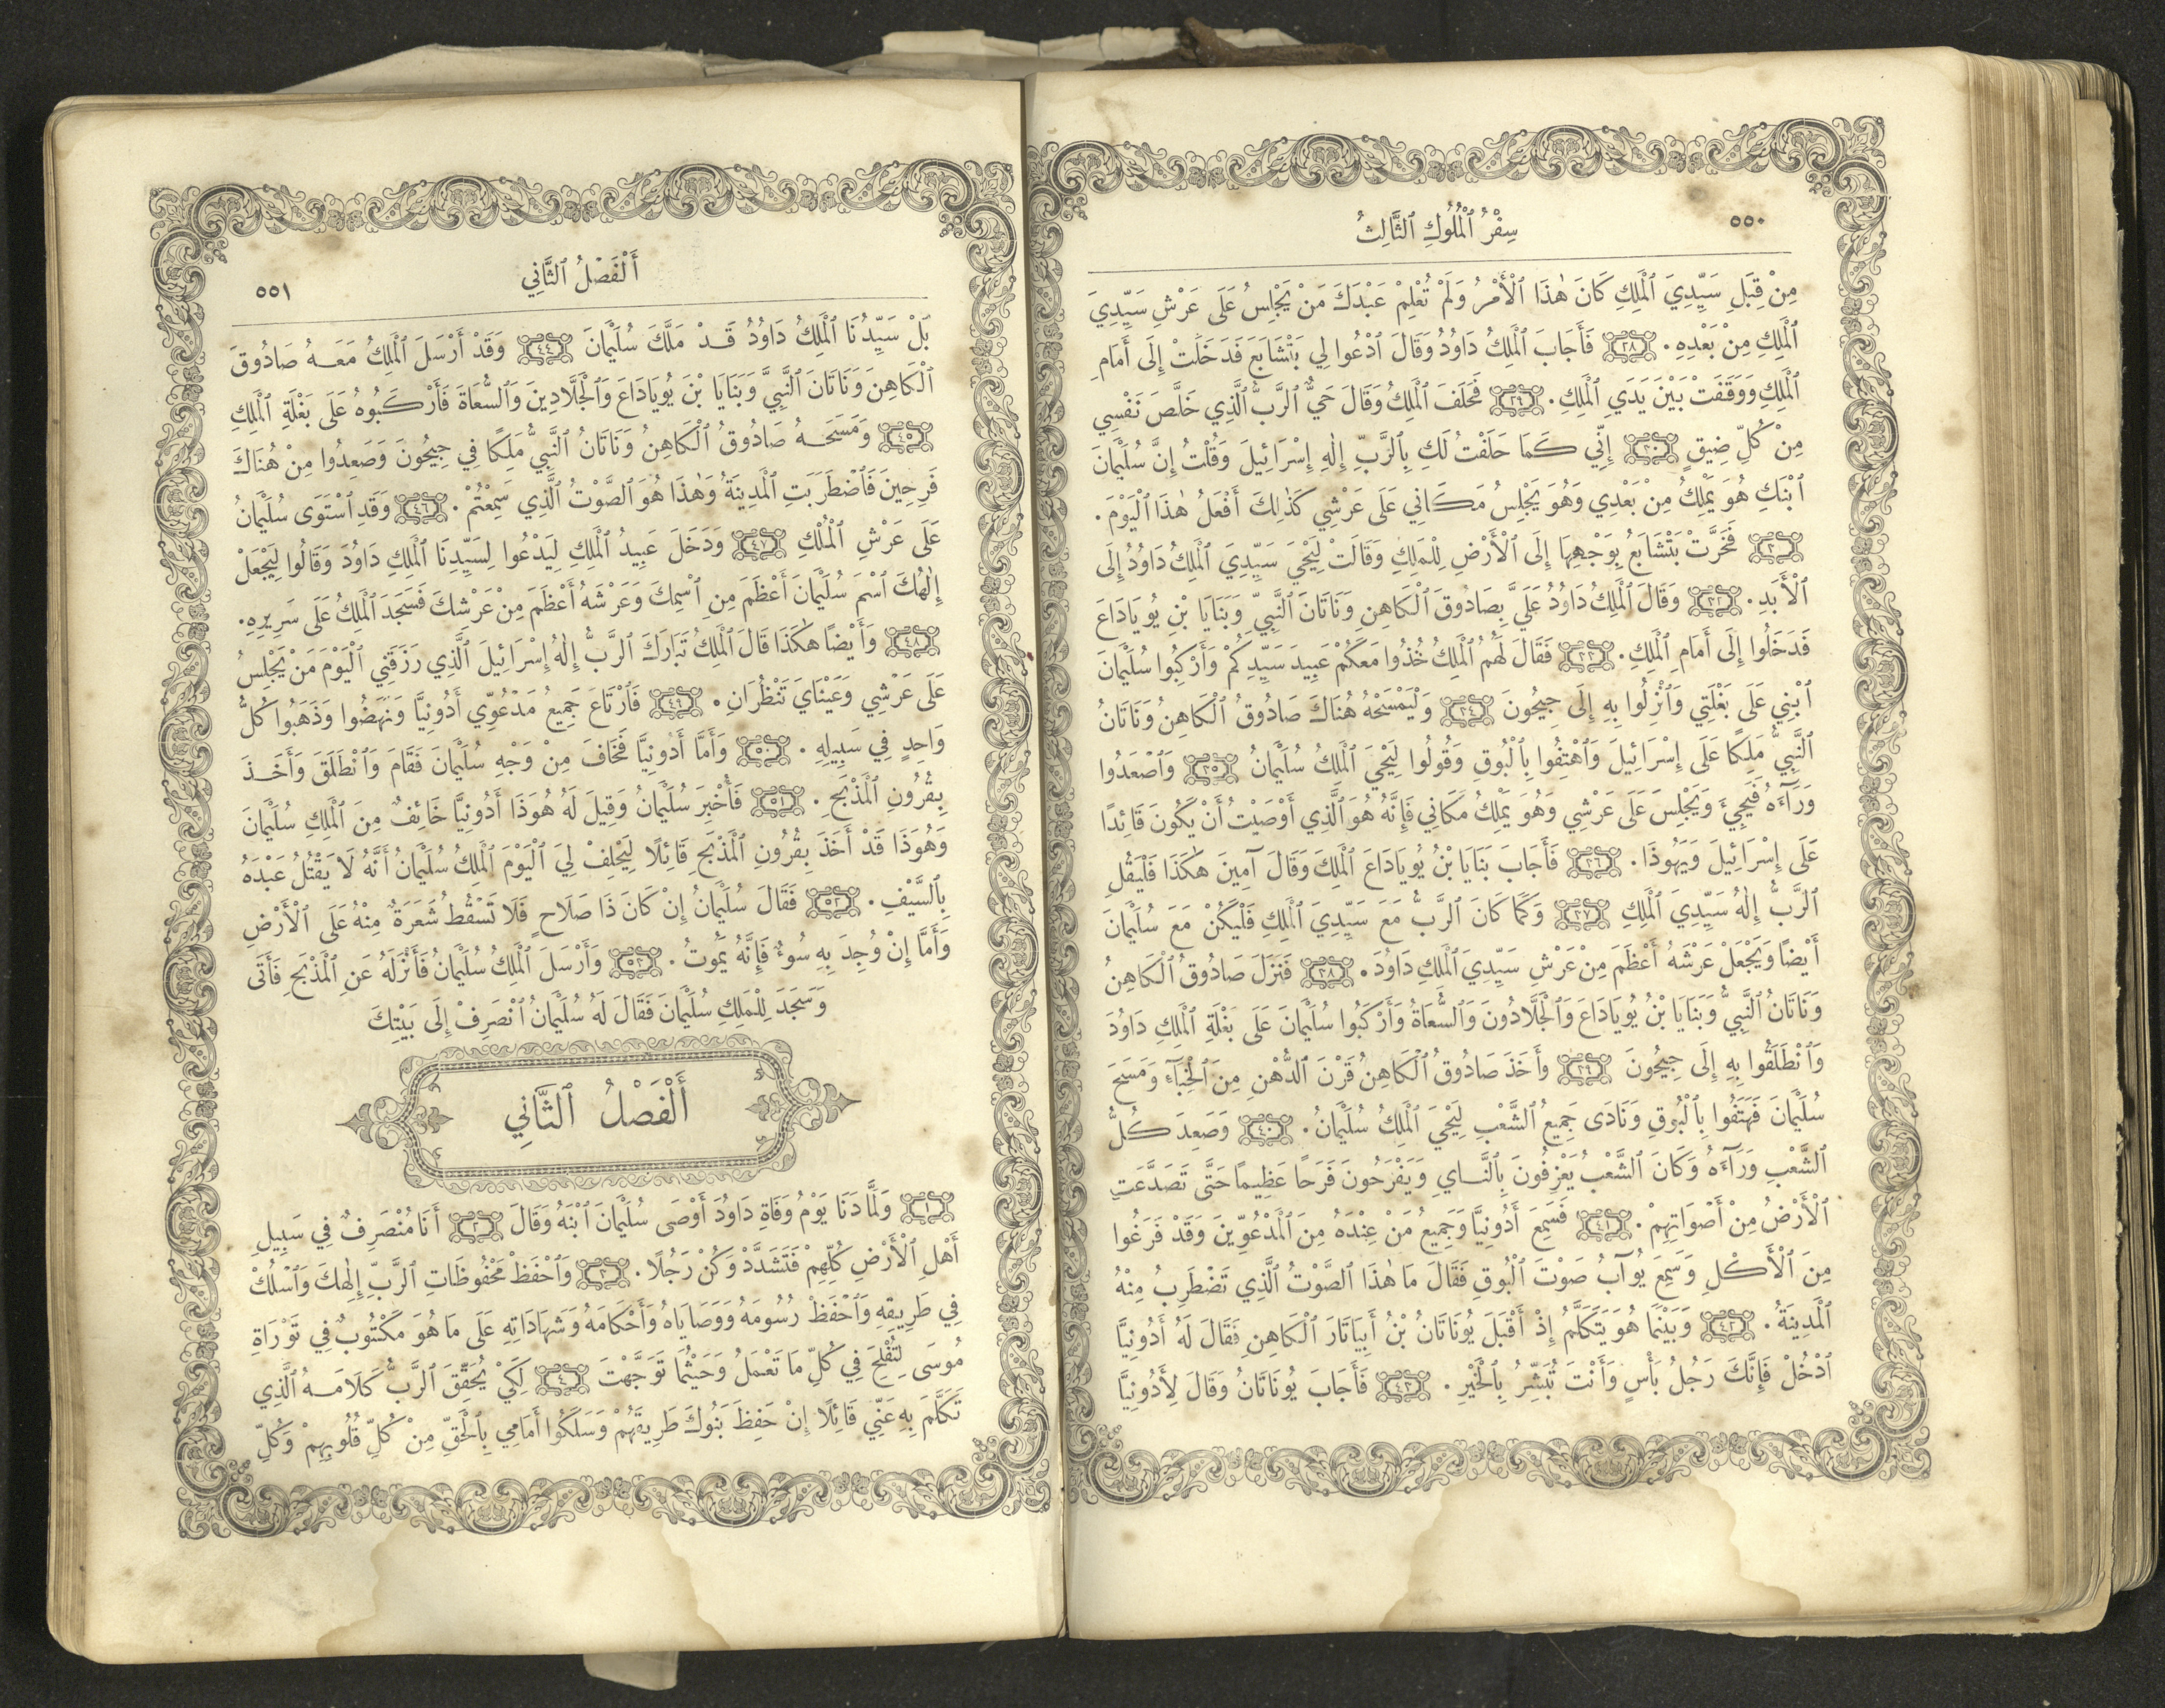 ٥٥٠
سِفْرُ ٱلْمُلُوكِ ٱلثَّالِثُ
مِنْ قِبَلِ سَيِّدِيَ ٱلْمَلِكِ كَانَ هٰذَا ٱلْأَمْرُ وَلَمْ تُعْلِمْ عَبْدَكَ مَنْ يَجْلِسُ عَلَى عَرْشِ سَيِّدِيَ
ٱلْمَلِكِ مِنْ بَعْدِهِ. ٢٨ فَأَجَابَ ٱلْمَلِكُ دَاوُدُ وَقَالَ ٱدْعُوا لِي بَتْشَابَعَ فَدَخَلَتْ إِلَى أَمَامِ
ٱلْمَلِكِ وَوَقَفَتْ بَيْنَ يَدَيِ ٱلْمَلِكِ. ٢٩ فَحَلَفَ ٱلْمَلِكُ وَقَالَ حَيٌّ ٱلرَّبُّ ٱلَّذِي خَلَّصَ نَفْسِي
مِنْ كُلِّ ضِيقٍ ٣٠ إِنِّي كَمَا حَلَفْتُ لَكِ بِٱلرَّبِّ إِلٰهِ إِسْرَائِيلَ وَقُلْتُ إِنَّ سُلَيْمَانَ
ٱبْنَكِ هُوَ يَمْلِكُ مِنْ بَعْدِي وَهُوَ يَجْلِسُ مَكَانِي عَلَى عَرْشِي كَذٰلِكَ أَفْعَلُ هٰذَا ٱلْيَوْمَ.
٣١ فَخَرَّتْ بَتْشَابَعُ بِوَجْهِهَا إِلَى ٱلْأَرْضِ لِلْمَلِكِ وَقَالَتْ لِيَحْيَ سَيِّدِيَ ٱلْمَلِكُ دَاوُدُ إِلَى
ٱلْأَبَدِ. ٣٢ وَقَالَ ٱلْمَلِكُ دَاوُدُ عَلَيَّ بِصَادُوقَ ٱلْكَاهِنِ وَنَاتَانَ ٱلنَّبِيِّ وَبَنَايَا بْنِ يُويَادَاعَ
فَدَخَلُوا إِلَى أَمَامِ ٱلْمَلِكِ. ٣٣ فَقَالَ لَهُمُ ٱلْمَلِكُ خُذُوا مَعَكُمْ عَبِيدَ سَيِّدِكُمْ وَأَرْكِبُوا سُلَيْمَانَ
ٱبْنِي عَلَى بَغْلَتِي وَٱنْزِلُوا بِهِ إِلَى جِيحُونَ ٣٤ وَلْيَمْسَحْهُ هُنَاكَ صَادُوقُ ٱلْكَاهِنُ وَنَاتَانُ
ٱلنَّبِيُّ مَلِكًا عَلَى إِسْرَائِيلَ وَٱهْتِفُوا بِٱلْبُوقِ وَقُولُوا لِيَحْيَ ٱلْمَلِكُ سُلَيْمَانُ ٣٥ وَٱصْعَدُوا
وَرَآءَهُ فَيَجِيءَ وَيَجْلِسَ عَلَى عَرْشِي وَهُوَ يَمْلِكُ مَكَانِي فَإِنَّهُ هُوَ ٱلَّذِي أَوْصَيْتُ أَنْ يَكُونَ قَائِدًا
عَلَى إِسْرَائِيلَ وَيَهُوذَا. ٣٦ فَأَجَابَ بَنَايَا بْنُ يُويَادَاعَ ٱلْمَلِكَ وَقَالَ آمِينَ هٰكَذَا فَلْيَقُلِ
ٱلرَّبُّ إِلٰهُ سَيِّدِيَ ٱلْمَلِكِ ٣٧ وَكَمَا كَانَ ٱلرَّبُّ مَعَ سَيِّدِيَ ٱلْمَلِكِ فَلْيَكُنْ مَعَ سُلَيْمَانَ
أَيْضًا وَيَجْعَلْ عَرْشَهُ أَعْظَمَ مِنْ عَرْشِ سَيِّدِيَ ٱلْمَلِكِ دَاوُدَ. ٣٨ فَنَزَلَ صَادُوقُ ٱلْكَاهِنُ
وَنَاتَانُ ٱلنَّبِيُّ وَبَنَايَا بْنُ يُويَادَاعَ وَٱلْجَلَّادُونَ وَٱلسُّعَاةُ وَأَرْكَبُوا سُلَيْمَانَ عَلَى بَغْلَةِ ٱلْمَلِكِ دَاوُدَ
وَٱنْطَلَقُوا بِهِ إِلَى جِيحُونَ ٣٩ وَأَخَذَ صَادُوقُ ٱلْكَاهِنُ قَرْنَ ٱلدُّهْنِ مِنَ ٱلْخِبَآءِ وَمَسَحَ
سُلَيْمَانَ فَهَتَفُوا بِٱلْبُوقِ وَنَادَى جَمِيعُ ٱلشَّعْبِ لِيَحْيَ ٱلْمَلِكُ سُلَيْمَانُ. ٤٠ وَصَعِدَ كُلُّ
ٱلشَّعْبِ وَرَآءَهُ وَكَانَ ٱلشَّعْبُ يَعْزِفُونَ بِٱلنَّايِ وَيَفْرَحُونَ فَرَحًا عَظِيمًا حَتَّى تَصَدَّعَتِ
ٱلْأَرْضُ مِنْ أَصْوَاتِهِمْ. ٤١ فَسَمِعَ أَدُونِيَّا وَجَمِيعُ مَنْ عِنْدَهُ مِنَ ٱلْمَدْعُوِّينَ وَقَدْ فَرَغُوا
مِنَ ٱلْأَكْلِ وَسَمِعَ يُوآبُ صَوْتَ ٱلْبُوقِ فَقَالَ مَا هٰذَا ٱلصَّوْتُ ٱلَّذِي تَضْطَرِبُ مِنْهُ
ٱلْمَدِينَةُ. ٤٢ وَبَيْنَمَا هُوَ يَتَكَلَّمُ إِذْ أَقْبَلَ يُونَاتَانُ بْنُ أَبِيَاتَارَ ٱلْكَاهِنِ فَقَالَ لَهُ أَدُونِيَّا
ٱدْخُلْ فَإِنَّكَ رَجُلُ بَأْسٍ وَأَنْتَ تُبَشِّرُ بِٱلْخَيْرِ. ٤٣ فَأَجَابَ يُونَاتَانُ وَقَالَ لِأَدُونِيَّا
أَلْفَصْلُ ٱلثَّانِي
٥٥١
بَلْ سَيِّدُنَا ٱلْمَلِكُ دَاوُدُ قَدْ مَلَّكَ سُلَيْمَانَ ٤٤ وَقَدْ أَرْسَلَ ٱلْمَلِكُ مَعَهُ صَادُوقَ
ٱلْكَاهِنَ وَنَاتَانَ ٱلنَّبِيَّ وَبَنَايَا بْنَ يُويَادَاعَ وَٱلْجَلَّادِينَ وَٱلسُّعَاةَ فَأَرْكَبُوهُ عَلَى بَغْلَةِ ٱلْمَلِكِ
٤٥ وَمَسَحَهُ صَادُوقُ ٱلْكَاهِنُ وَنَاتَانُ ٱلنَّبِيُّ مَلِكًا فِي جِيحُونَ وَصَعِدُوا مِنْ هُنَاكَ
فَرِحِينَ فَٱضْطَرَبَتِ ٱلْمَدِينَةُ وَهٰذَا هُوَ ٱلصَّوْتُ ٱلَّذِي سَمِعْتُمْ. ٤٦ وَقَدِ ٱسْتَوَى سُلَيْمَانُ
عَلَى عَرْشِ ٱلْمُلْكِ ٤٧ وَدَخَلَ عَبِيدُ ٱلْمَلِكِ لِيَدْعُوا لِسَيِّدِنَا ٱلْمَلِكِ دَاوُدَ وَقَالُوا لِيَجْعَلْ
إِلٰهُكَ ٱسْمَ سُلَيْمَانَ أَعْظَمَ مِنِ ٱسْمِكَ وَعَرْشَهُ أَعْظَمَ مِنْ عَرْشِكَ فَسَجَدَ ٱلْمَلِكُ عَلَى سَرِيرِهِ.
٤٨ وَأَيْضًا هٰكَذَا قَالَ ٱلْمَلِكُ تَبَارَكَ ٱلرَّبُّ إِلٰهُ إِسْرَائِيلَ ٱلَّذِي رَزَقَنِي ٱلْيَوْمَ مَنْ يَجْلِسُ
عَلَى عَرْشِي وَعَيْنَايَ تَنْظُرَانِ. ٤٩ فَٱرْتَاعَ جَمِيعُ مَدْعُوِّي أَدُونِيَّا وَنَهَضُوا وَذَهَبُوا كُلُّ
وَاحِدٍ فِي سَبِيلِهِ. ٥٠ وَأَمَّا أَدُونِيَّا فَخَافَ مِنْ وَجْهِ سُلَيْمَانَ فَقَامَ وَٱنْطَلَقَ وَأَخَذَ
بِقُرُونِ ٱلْمَذْبَحِ. ٥١ فَأُخْبِرَ سُلَيْمَانُ وَقِيلَ لَهُ هُوَذَا أَدُونِيَّا خَائِفٌ مِنَ ٱلْمَلِكِ سُلَيْمَانَ
وَهُوَذَا قَدْ أَخَذَ بِقُرُونِ ٱلْمَذْبَحِ قَائِلًا لِيَحْلِفْ لِيَ ٱلْيَوْمَ ٱلْمَلِكُ سُلَيْمَانُ أَنَّهُ لَا يَقْتُلُ عَبْدَهُ
بِٱلسَّيْفِ. ٥٢ فَقَالَ سُلَيْمَانُ إِنْ كَانَ ذَا صَلَاحٍ فَلَا تَسْقُطُ شَعَرَةٌ مِنْهُ عَلَى ٱلْأَرْضِ
وَأَمَّا إِنْ وُجِدَ بِهِ سُوءٌ فَإِنَّهُ يَمُوتُ. ٥٣ وَأَرْسَلَ ٱلْمَلِكُ سُلَيْمَانُ فَأَنْزَلَهُ عَنِ ٱلْمَذْبَحِ فَأَتَى
وَسَجَدَ لِلْمَلِكِ سُلَيْمَانَ فَقَالَ لَهُ سُلَيْمَانُ ٱنْصَرِفْ إِلَى بَيْتِكَ
أَلْفَصْلُ ٱلثَّانِي
١ وَلَمَّا دَنَا يَوْمُ وَفَاةِ دَاوُدَ أَوْصَى سُلَيْمَانَ ٱبْنَهُ وَقَالَ ٢ أَنَا مُنْصَرِفٌ فِي سَبِيلِ
أَهْلِ ٱلْأَرْضِ كُلِّهِمْ فَتَشَدَّدْ وَكُنْ رَجُلًا. ٣ وَٱحْفَظْ مَحْفُوظَاتِ ٱلرَّبِّ إِلٰهِكَ وَٱسْلُكْ
فِي طَرِيقِهِ وَٱحْفَظْ رُسُومَهُ وَوَصَايَاهُ وَأَحْكَامَهُ وَشَهَادَاتِهِ عَلَى مَا هُوَ مَكْتُوبٌ فِي تَوْرَاةِ
مُوسَى لِتُفْلِحَ فِي كُلِّ مَا تَعْمَلُ وَحَيْثُمَا تَوَجَّهْتَ ٤ لِكَيْ يُحَقِّقَ ٱلرَّبُّ كَلَامَهُ ٱلَّذِي
تَكَلَّمَ بِهِ عَنِّي قَائِلًا إِنْ حَفِظَ بَنُوكَ طَرِيقَهُمْ وَسَلَكُوا أَمَامِي بِٱلْحَقِّ مِنْ كُلِّ قُلُوبِهِمْ وَكُلِّ